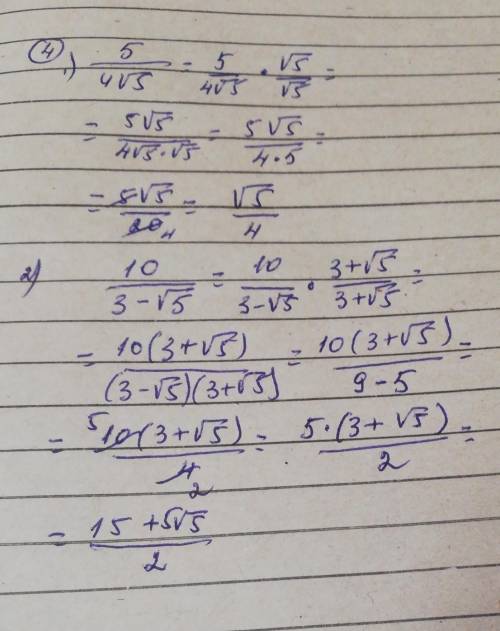 ④
1) 5/(4√5) = 5/(4√5) · √5/√5 =
= 5√5/(4√5·√5) = 5√5/(4·5) =
= 5√5/20 4 = √5/4
2) 10/(3-√5) = 10/(3-√5) · (3+√5)/(3+√5) =
= 10(3+√5)/((3-√5)(3+√5)) = 10(3+√5)/(9-5) =
= 5 10(3+√5)/4 2 = 5·(3+√5)/2 =
= (15+5√5)/2